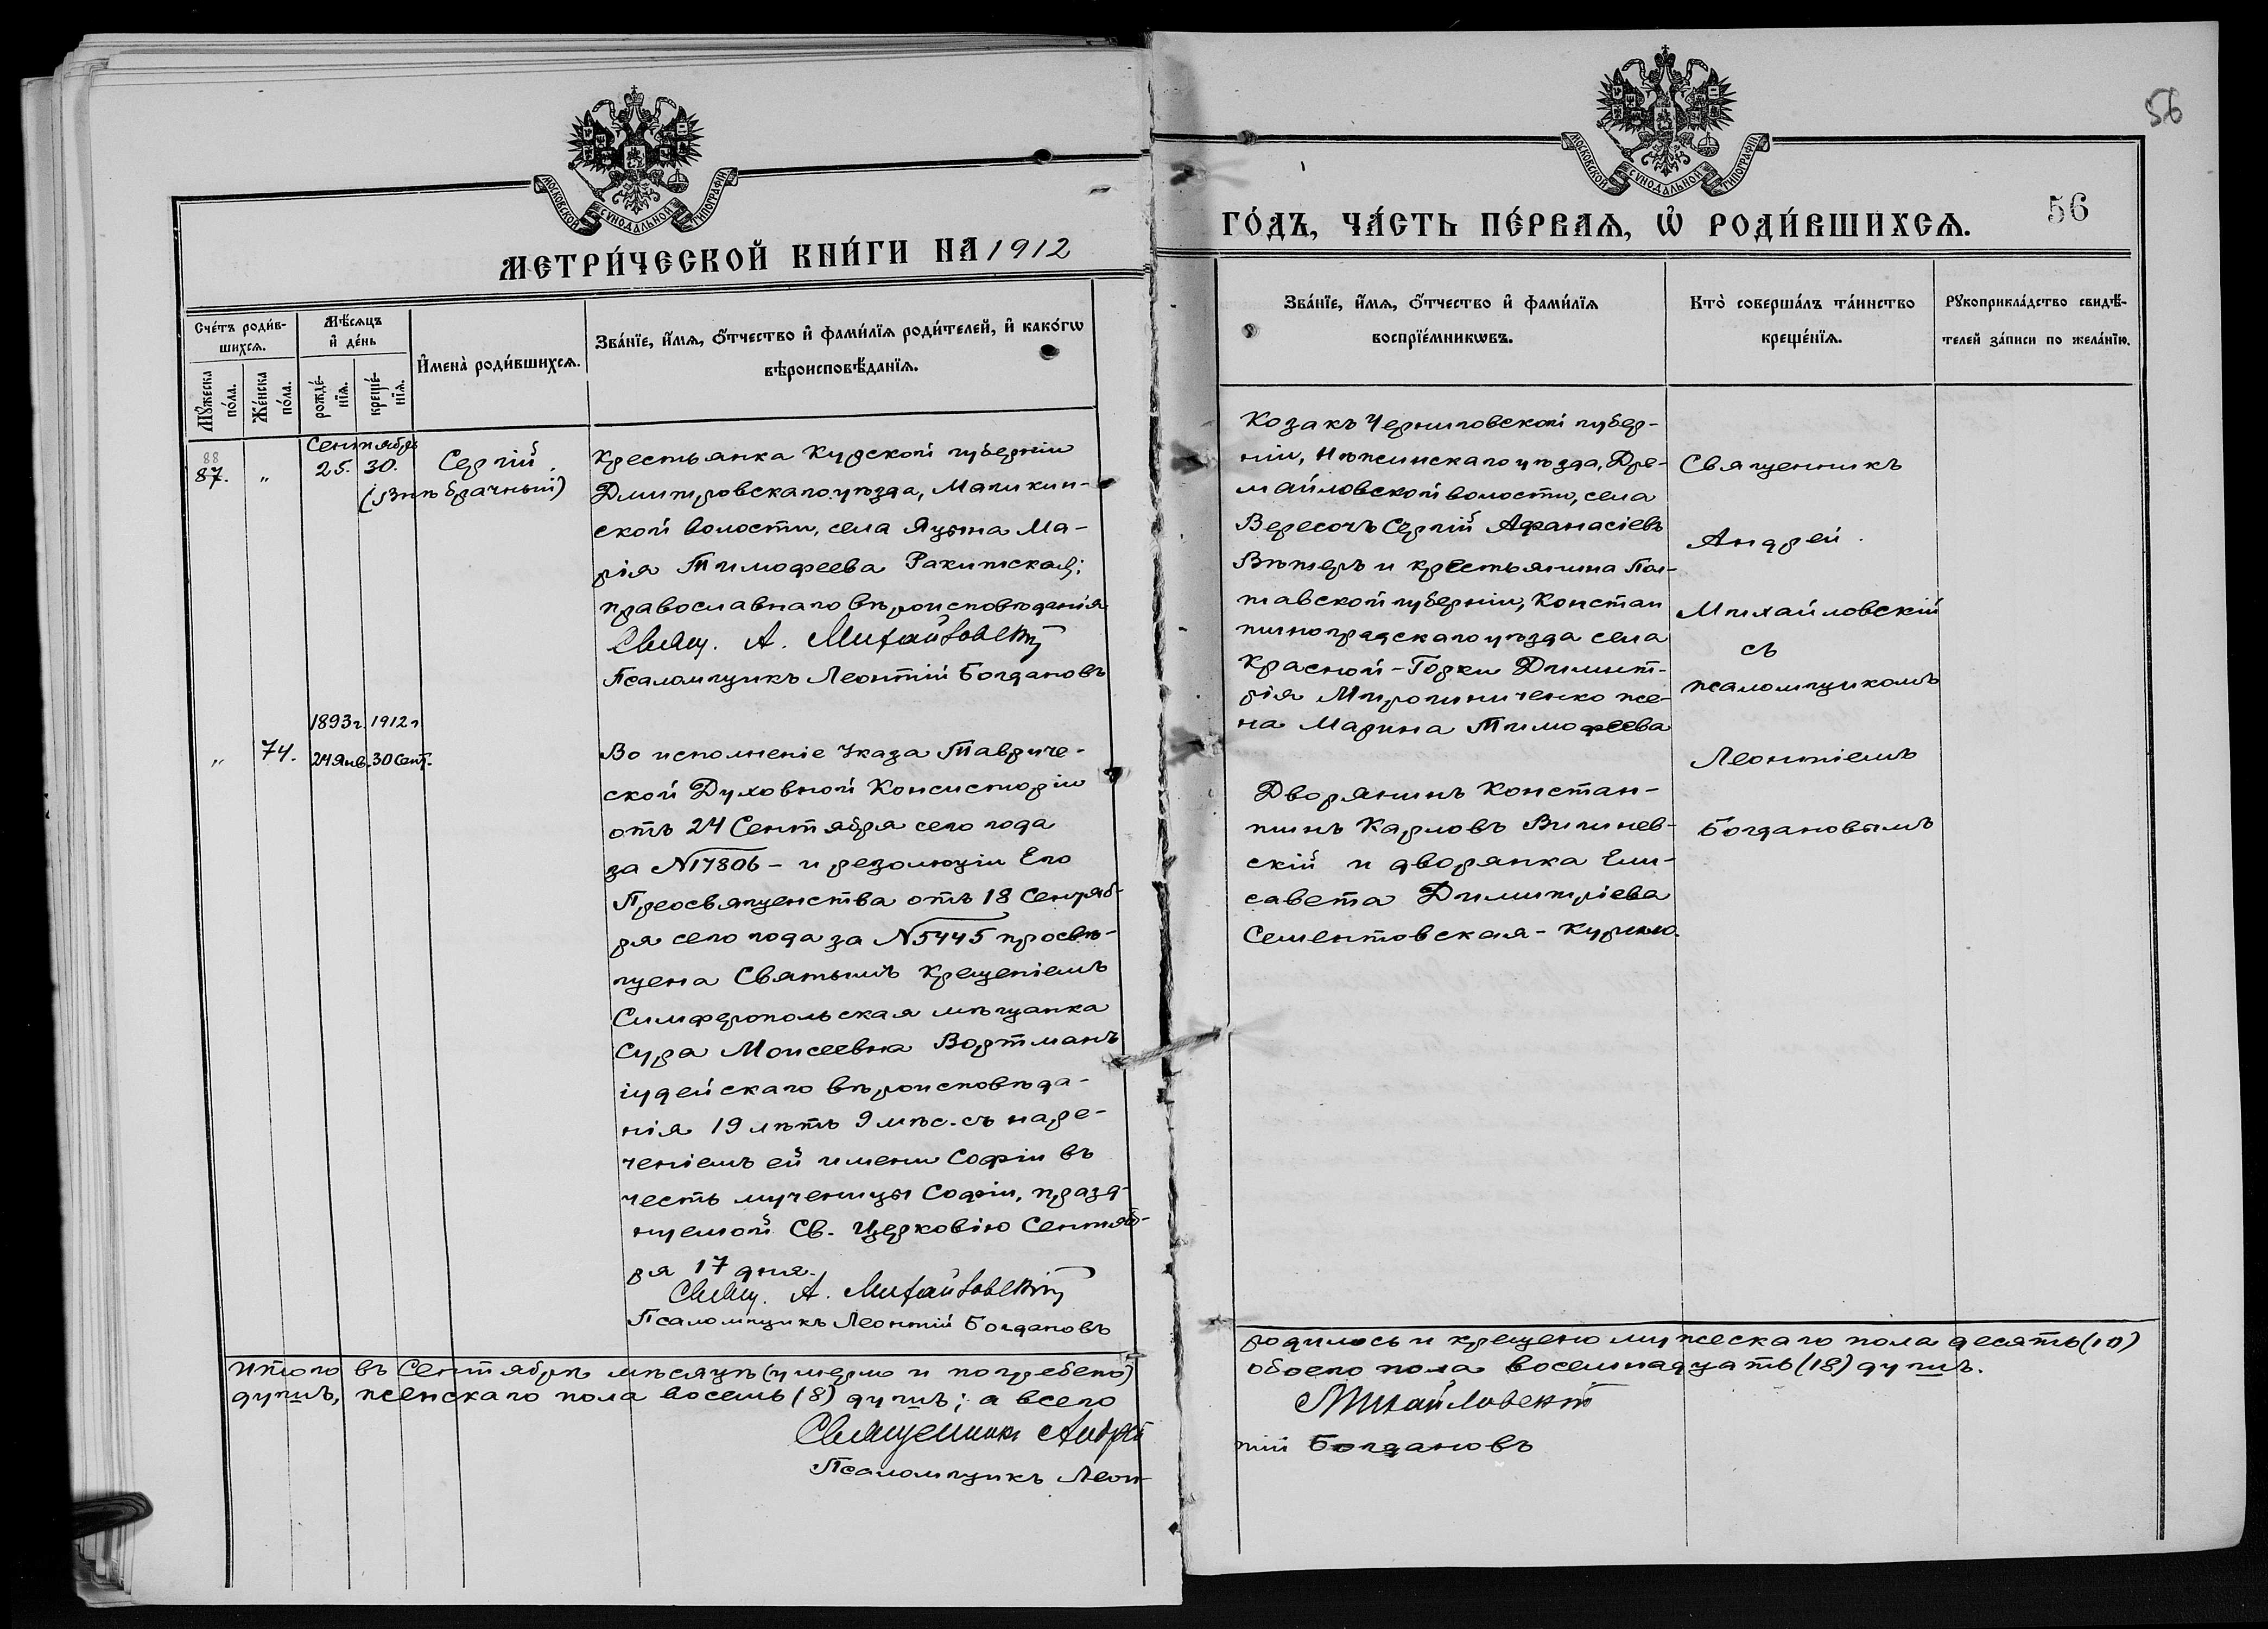 56
МОСКОВСКОЙ СУНОДАЛЬНОЙ ТИПОГРАФІИ
МЕТРИ́ЧЕСКОЙ КНИ́ГИ НА 1912
Сче́тъ роди́в-
шихсѧ.
Мꙋ́жеска
по́ла.
Же́нска
по́ла.
Мѣ́сѧцъ
и҆ де́нь
рожде́-
нїѧ.
креще́-
нїѧ.
И҆мена̀ роди́вшихсѧ.
Зва́нїе, и҆́мѧ, ѻ҆́тчество и҆ фами́лїѧ роди́телей, и҆ како́гѡ
вѣроисповѣ́данїѧ.
Сентябрь
88
87. " 25. 30. Сергій
(Внѣбрачный)
Крестьянка Курской губерніи
Дмитровскаго уѣзда,
ской волости, села Яцына Ма-
рія Тимофеева Ракитская;
православнаго вѣроисповѣданія
Свящ. А. Михайловскій
Псаломщикъ Леонтій Богдановъ
1893г. 1912г
" 74. 24 Янв. 30 Сент.
Во исполненіе Указа Тавриче-
ской Духовной Консисторіи
отъ 24 Сентября сего года
за N17806 - и резолюціи Его
Преосвященства отъ 18 Сентяб-
ря сего года за N5445 просвѣ-
щена Святымъ Крещеніемъ
Симферопольская мѣщанка
Сура Моисеевна Вортманъ
іудейскаго вѣроисповѣда-
нія 19 лѣтъ 9 мѣс. съ наре-
ченіемъ ей имени Софіи въ
честь мученицы Софіи, празд-
нуемой Св. Церковію Сентяб-
ря 17 дня.
Свящ. А. Михайловскій
Псаломщикъ Леонтій Богдановъ
Итого въ Сентябрѣ мѣсяцѣ (умерло и погребено)
душъ, женскаго пола восемь (8) душъ; а всего
Священникъ Андрей
Псаломщикъ Леон-
МОСКОВСКОЙ СУНОДАЛЬНОЙ ТИПОГРАФІИ
ГО́ДЪ, ЧА́СТЬ ПЕ́РВАѦ, Ѡ҆ РОДИ́ВШИХСѦ.
56
Зва́нїе, и҆́мѧ, ѻ҆́тчество и҆ фами́лїѧ
воспрїе́мникѡвъ.
Кто̀ соверша́лъ та́инство
креще́нїѧ.
Рꙋкоприкла́дство свидѣ́-
телей за́писи по жела́нїю.
Козакъ Черниговской губер-
ніи, Нѣжинскаго уѣзда, Дре-
майловской волости, села
Вересочъ Сергій Афанасіевъ
Вѣтеръ и крестьянина Пол-
тавской губерніи, Констан
тиноградскаго уѣзда села
Красной-Горки Димит-
рія Мирошниченко же-
на Марина Тимофеева
Дворянинъ Констан-
тинъ Карловъ Вишнев-
скій и дворянка Ели-
савета Димитріева
Сементовская-Курило.
Священникъ
Андрей
Михайловскій
съ
псаломщикомъ
Леонтіемъ
Богдановымъ
родилось и крещено мужескаго пола десять (10)
обоего пола восемнадцать (18) душъ.
Михайловскій
тій Богдановъ